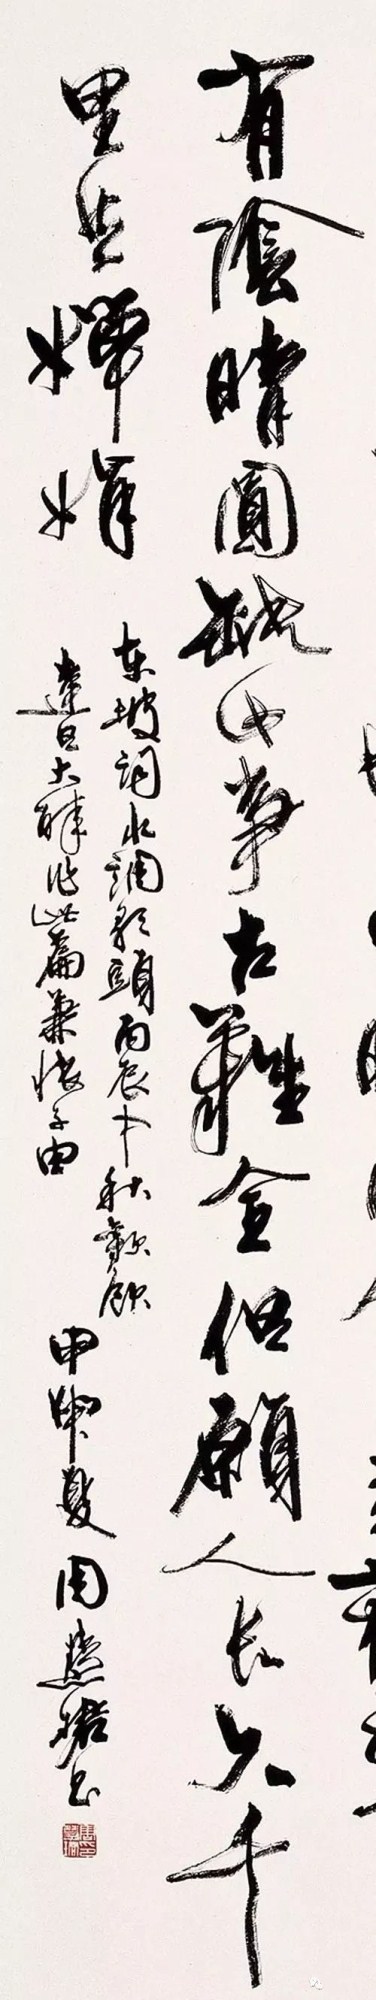 有陰晴圓缺此事古難全但願人長久千
里共嬋娟
東坡詞水調歌頭丙辰中秋歡飲
達旦大醉作此篇兼懷子由
甲申夏周慧珺書